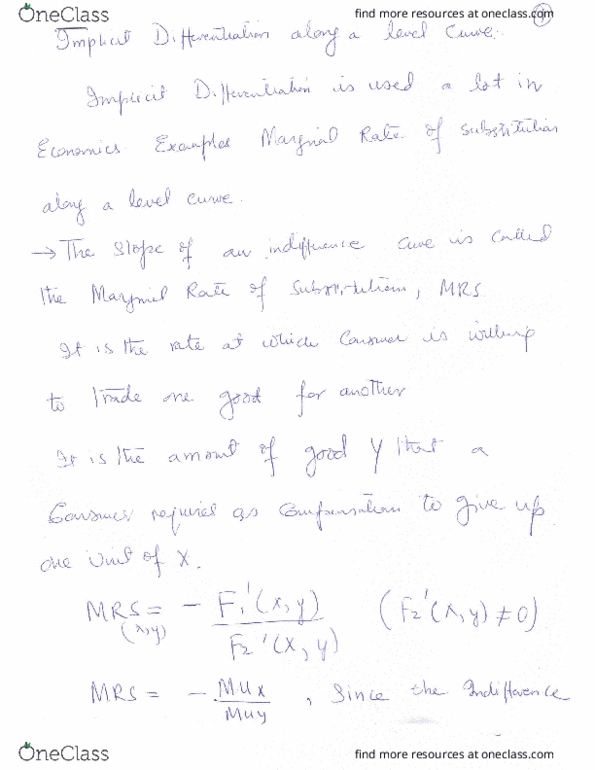 OneClass
find more resources at oneclass.com
Implicit Differentiation along a level Curve.
Implicit Differentiation is used a lot in
Economics. Examples Marginal Rate of Substitution
along a level curve.
→ The Slope of an indifference Curve is called
the Marginal Rate of Substitution, MRS
It is the rate at which Consumer is willing
to trade one good for another
It is the amount of good Y that a
Consumer requires as Compensation to give up
one unit of X.
MRS = - F1'(x,y) / F2'(x,y) (F2'(x,y) ≠ 0)
(x,y)
MRS = - MUx / MUy , Since the Indifference
OneClass
find more resources at oneclass.com